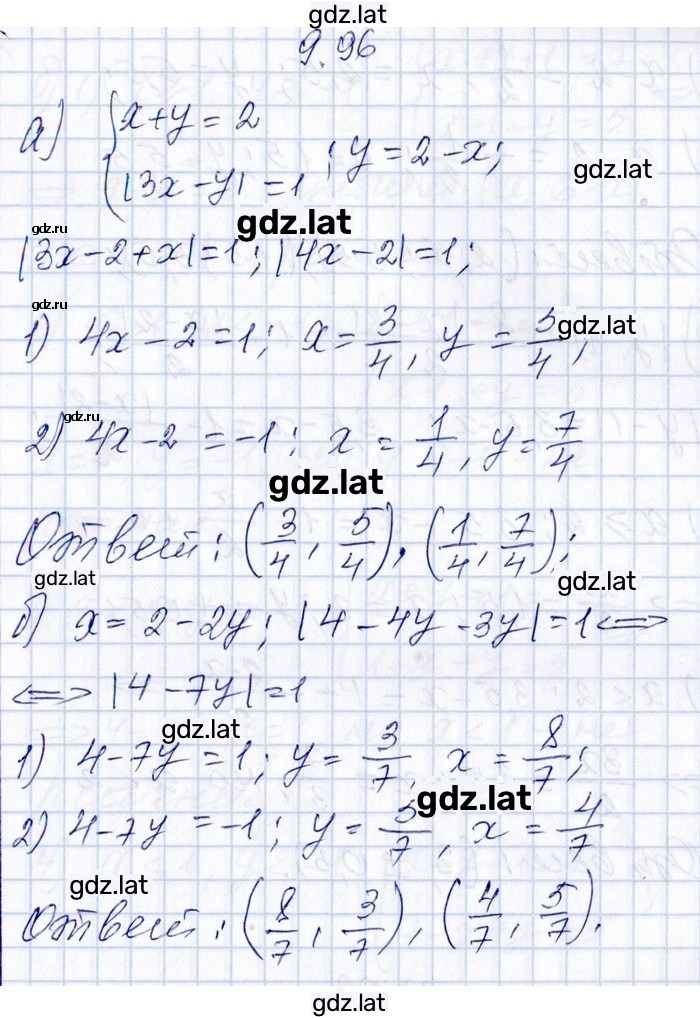 gdz.lat
9.96
а) { x+y=2 ; |3x-y|=1 ; y=2-x; gdz.lat
gdz.ru gdz.lat
|3x-2+x|=1; |4x-2|=1;
gdz.ru gdz.lat
1) 4x-2=1; x=3/4, y=5/4;
gdz.ru
2) 4x-2=-1; x=1/4, y=7/4
gdz.lat
Ответ: (3/4, 5/4), (1/4, 7/4);
gdz.lat gdz.lat
б) x=2-2y; |4-4y-3y|=1 ⟺
⟺ |4-7y|=1
gdz.lat
1) 4-7y=1; y=3/7, x=8/7;
gdz.lat
2) 4-7y=-1; y=5/7, x=4/7
gdz.lat
Ответ: (8/7, 3/7), (4/7, 5/7).
gdz.lat